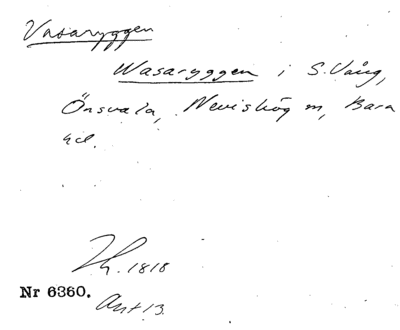 Vasaryggen
Wasaryggen i S. Vång,
Önsvala, Nevishög m, Bara
hd.
Th. 1818
Nr 6360.
Ant 13.